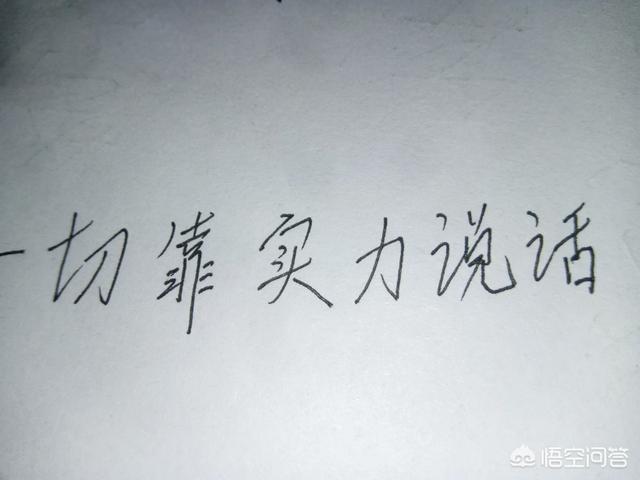 一切靠实力说话
悟空问答